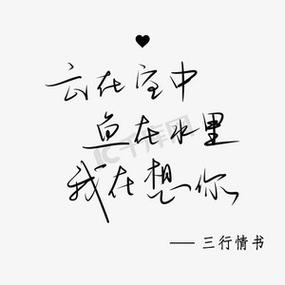 云在空中
鱼在水里
我在想你
—— 三行情书